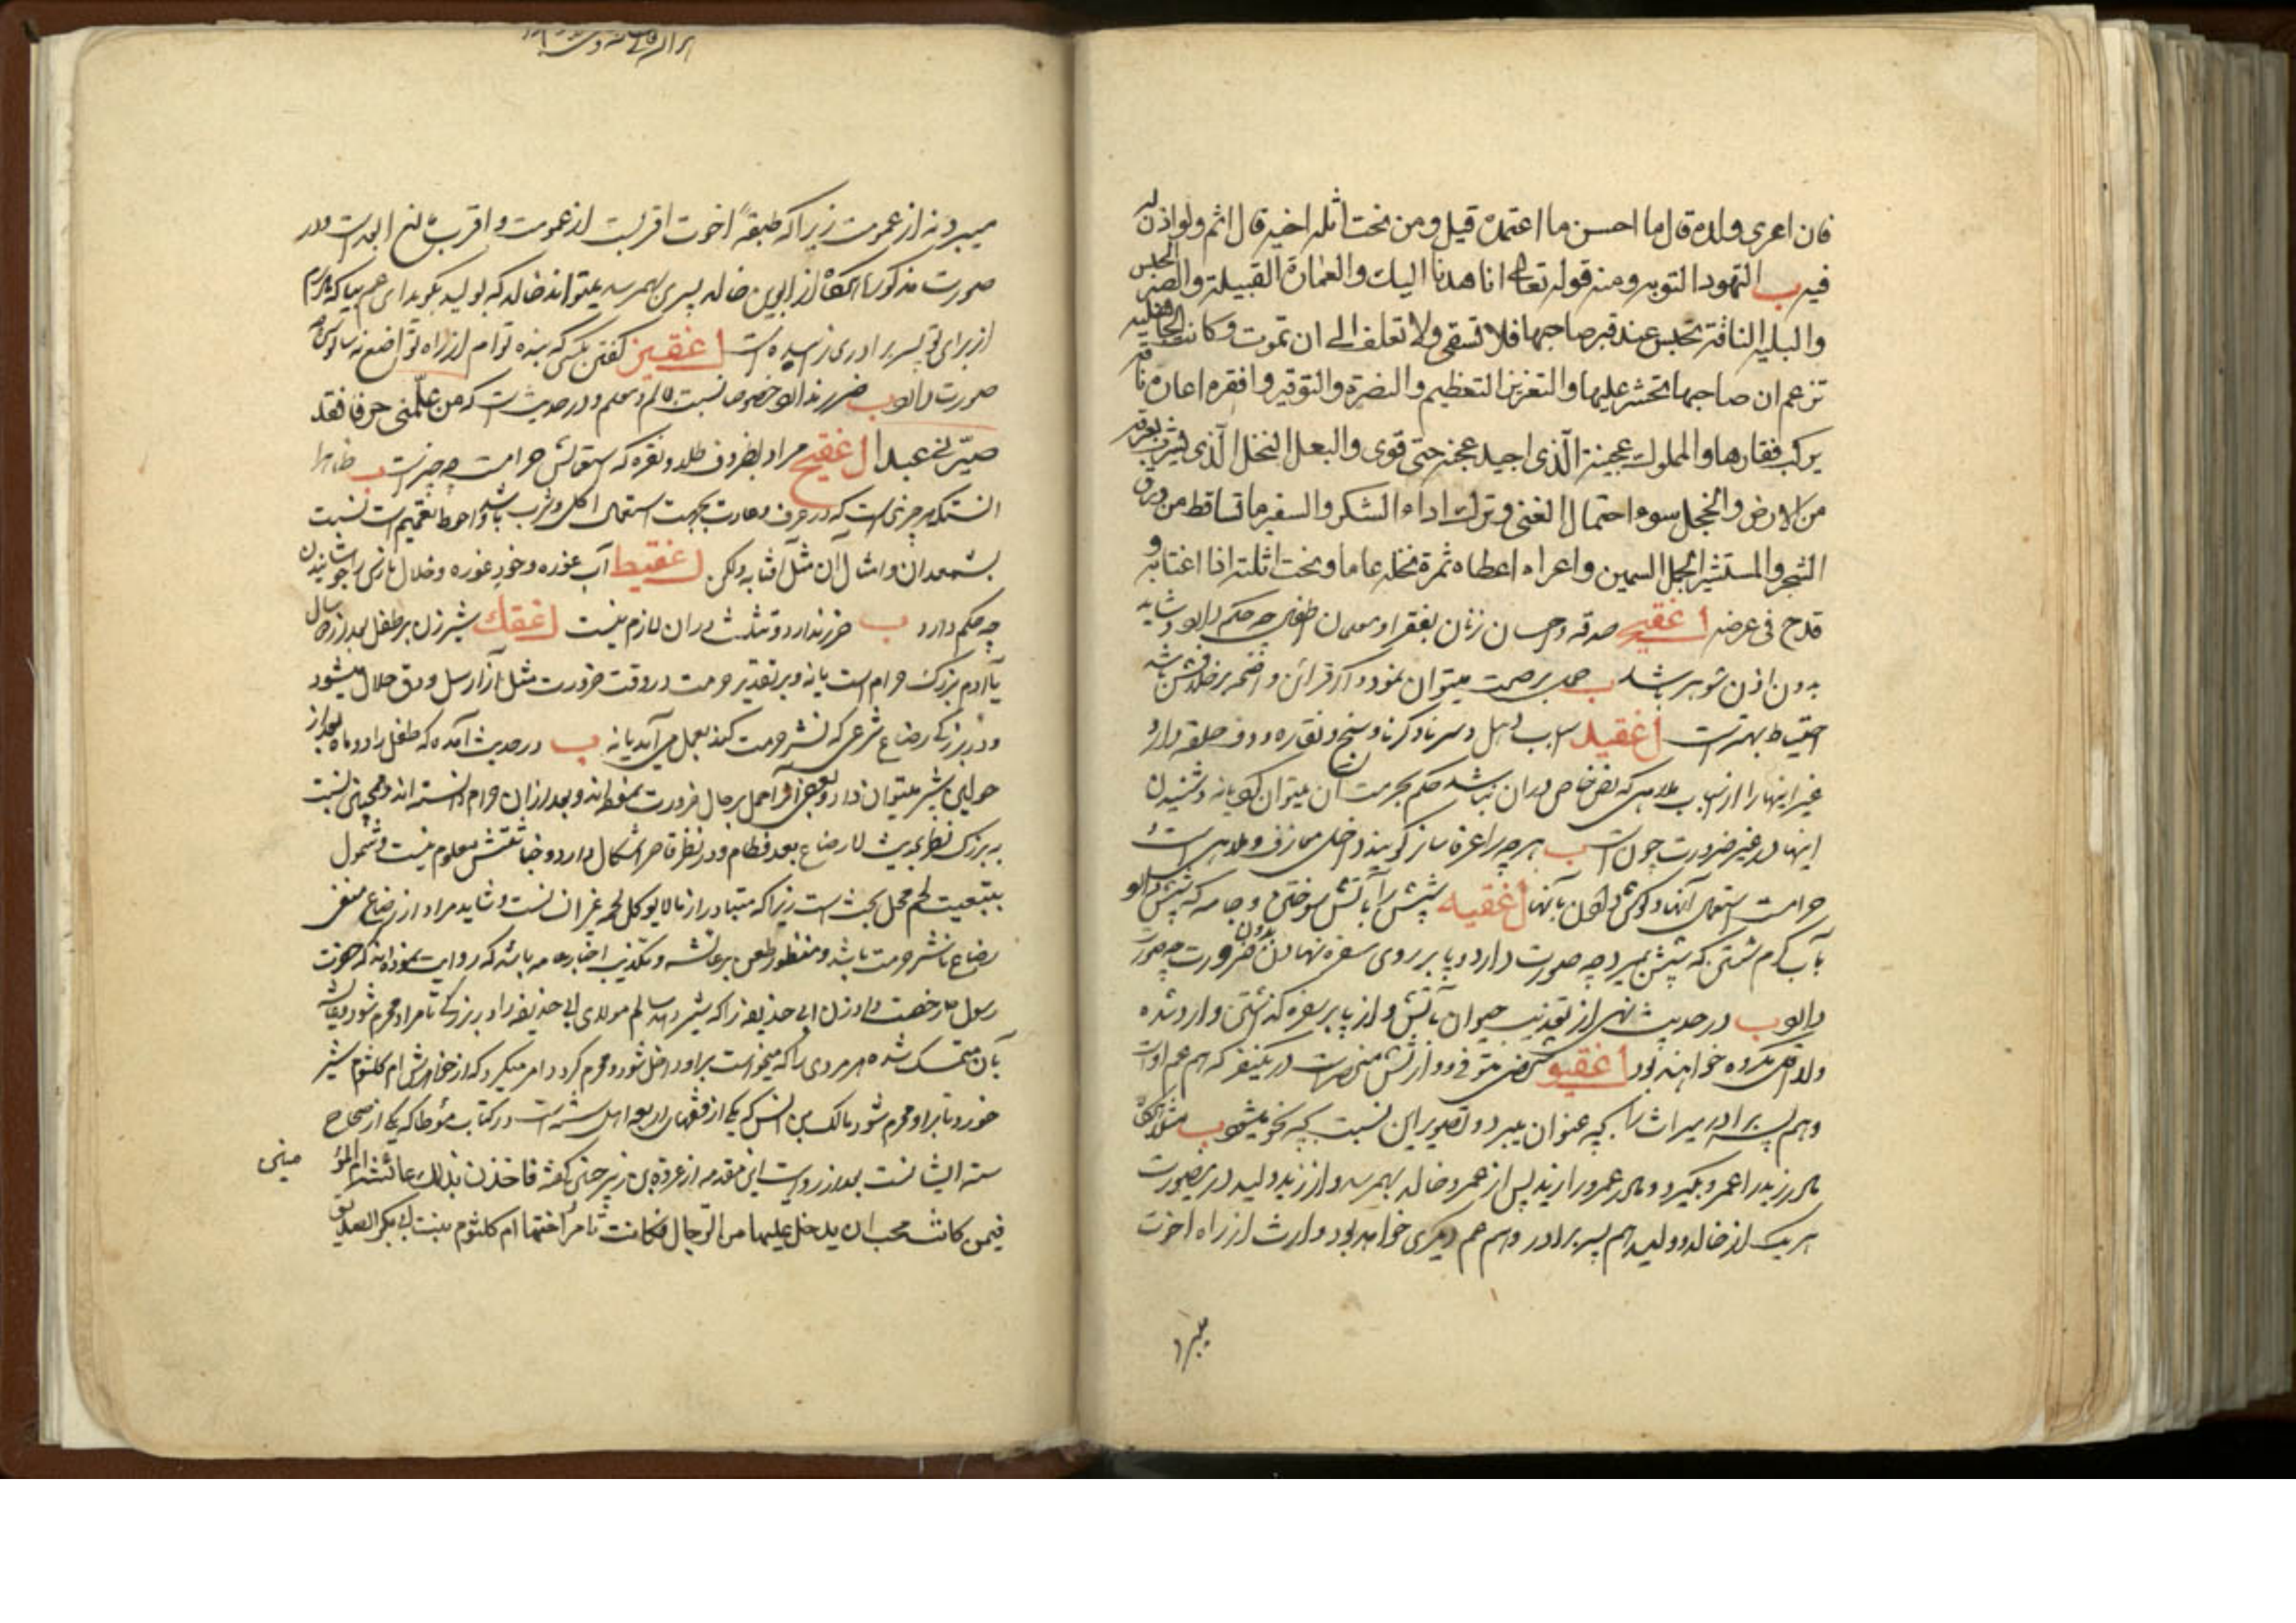 فان اعری ولده قال ما احسن ما اعتمده قیل ومن نحت اثلة اخیه قال اثم ولو اذن له
فیه ب التهود التوبه ومنه قوله تعالی انا هدنا الیک والعمارة القبیلة والصبر الحبس
والبلیه الناقة تحبس عند قبر صاحبها فلا تسقی ولا تعلف الی ان تموت وکانت الجاهلیه
تزعم ان صاحبها یحشر علیها والتعزیر التعظیم والنصرة والتوقیر وافقره اعاره ناقة
یرکب فقارها والمملوک عجینة الذی اجید عجنه حتی قوی والبعل النخل الذی یشرب بعرقه
من الارض والخجل سوء احتمال الغنی وترک اداء الشکر والسفیر ما تساقط من ورق
الشجر والمستشیر الجمل السمین واعراه اعطاه ثمرة نخله عاما ونحت اثلته اذا اغتابه و
قدح فی عرضه اغقیج صدقه واحسان زنان بفقرا و معلمان اطفال چه حکم دارد و شاید
بدون اذن شوهر باشد ب حمل بر صحت میتوان نمود و اگر قرائن واضحه بر خلافش باشد
احتیاط بهتر است اغقید اسباب دهل و سرنا و کرنا و سنج و نقاره و دف حلقه دار و
غیر اینها را از اسباب ملاهی که نص خاص در ان نباشد حکم بحرمت آن میتوان کرد یا نه و شنیدن
اینها در غیر ضرورت چون است ب هر چه را عرفا ساز گویند داخل معازف و ملاهی است و
حرامست استعمال آنها و گوش دادن بآنها اغقیه شپش را بآتش سوختن و جامه که شپش دارد
بآب گرم شستن که شپش بمیرد چه صورت دارد و پا بر روی سفره نهادن بدون ضرورت چه صورت
دارد ب در حدیث نهی از تعذیب حیوان بآتش و از پا بر سفره گذشتن وارد شده
ولا اقل مکروه خواهند بود اغقیو شخصی متوفی و وارثش منحصر است در یکنفر که هم عم اوست
وهم پسر برادر میراث را بچه عنوان میبرد و تصویر این نسبت بچه نحو میشود ب مثلا
مادر زید را عمرو بگیرد و مادر عمرو را زید پس از عمرو خالد بهمرسد و از زید ولید در یصورت
هر یک از خالد و ولید هم پسر برادر و هم عم دیگری خواهد بود و ارث از راه اخوت
میبرد
میبرد نه از عمومت زیرا که طبقهٔ اخوت اقربست از عمومت و اقرب مانع ابعد است و در
صورت مذکوره از ابوین خالد پسری بهمرسد میتواند خالد که بولید بگوید ای عم بیا که مادرم
از برای تو پسر برادری زاییده است اغقیز گفتن بکسی که بنده توام از راه تواضع نه سالوس چه
صورت دارد ب ضرر ندارد خصوصا نسبت بعالم و معلم و در حدیث است که من علمنی حرفا فقد
صیرنی عبدا اغقیح مراد بظروف طلا و نقره که استعمالش حرامست چه چیز است ب ظاهرا
انستکه هر چیزی است که در عرف و عادت بجهت استعمال اکل و شرب باشد و احوط تعمیم است نسبت
بشمعدان و امثال آن مثل آفتابه و لگن اغقیط آب غوره و خود غوره و خلال نارنج را جوشانیدن
چه حکم دارد ب ضرر ندارد و تثلیث در ان لازم نیست اغقک شیر زن بر طفل بعد از دو سال
یا آدم بزرگ حرام است یا نه و بر تقدیر حرمت در وقت ضرورت مثل آزار سل و دق حلال میشود
و در بزرگی رضاع شرعی که نشر حرمت کند بعمل می آید یا نه ب در حدیث آمده که طفل را دو ماه بعد از
حولین شیر میتوان داد و بعضی آنرا حمل بر حال ضرورت نموده اند و بعد از ان حرام دانسته اند و همچنین نسبت
به بزرگ نظر بحدیث لا رضاع بعد فطام و در نظر قاصر اشکال دارد و خباثتش معلوم نیست و شمول
بتبعیت لحم محل بحث است زیرا که متبادر از مالا یوکل لحمه غیر انسانست و شاید مراد از رضاع منفی
رضاع ناشر حرمت باشد و منظور طعن بر عائشه و تکذیب اخبار عامه باشد که روایت نموده اند که حضرت
رسول ص رخصت داد زن ابی حذیفه را که شیر دهد سالم مولای ابی حذیفه را در بزرگی تا مرا و محرم شود و عایشه
بآن متمسک شده هر مردی را که میخواست بر او داخل شود و محرم گردد امر میکرد که از خواهرش ام کلثوم شیر
خورد تا بر او محرم شود مالک بن انس که یکی از فقهای اربعه اهل سنت است در کتاب موطا که یکی از صحاح
سته ایشانست بعد از روایت این مقدمه از عروه بن زبیر چنین گفته فاخذت بذلک عائشة ام المؤ
منین
فیمن کانت تحب ان یدخل علیها من الرجال فکانت تامر اختها ام کلثوم بنت ابی بکر الصدیق